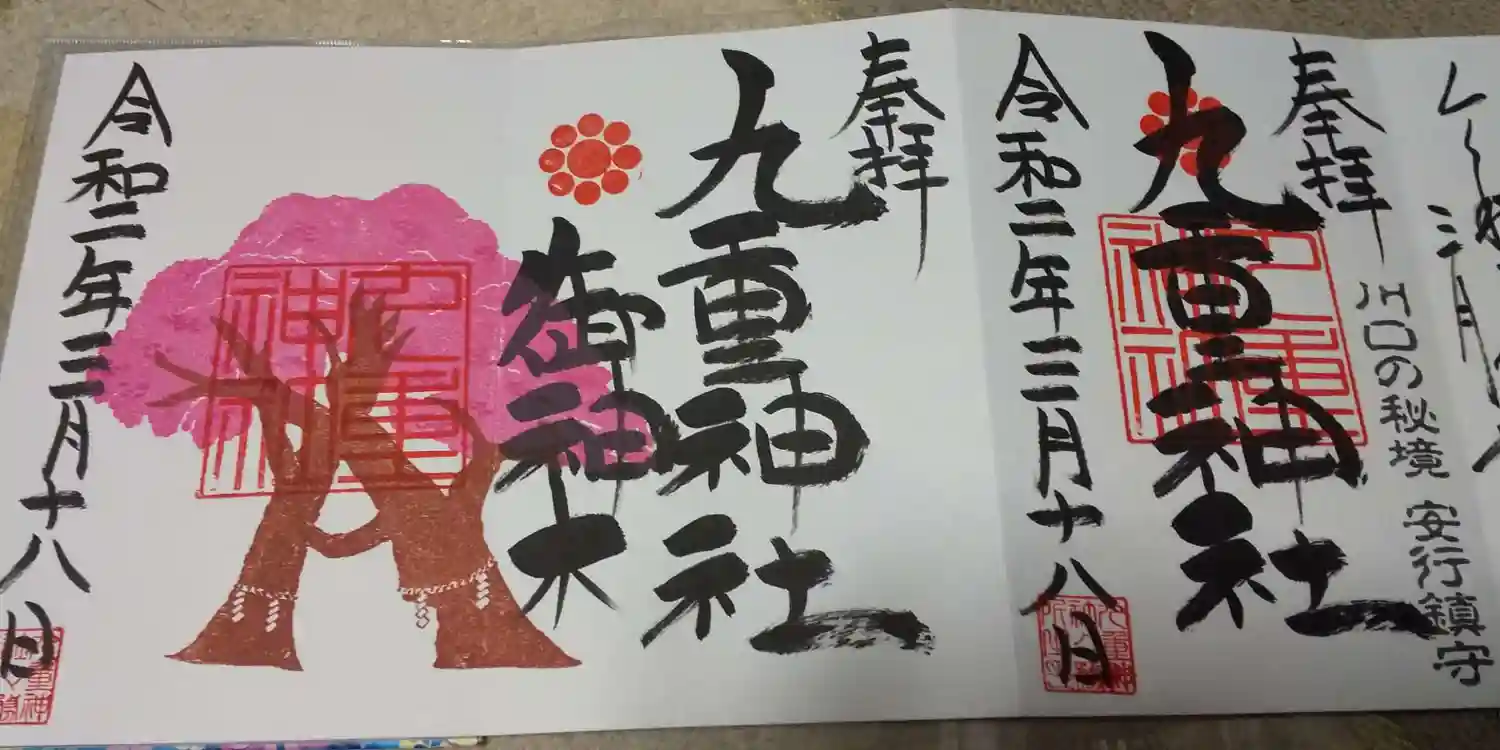 奉拝
川口の秘境 安行鎮守
九重神社
令和二年三月十八日
奉拝
九重神社
御神木
令和二年三月十八日
九重神社
九重神社
三月